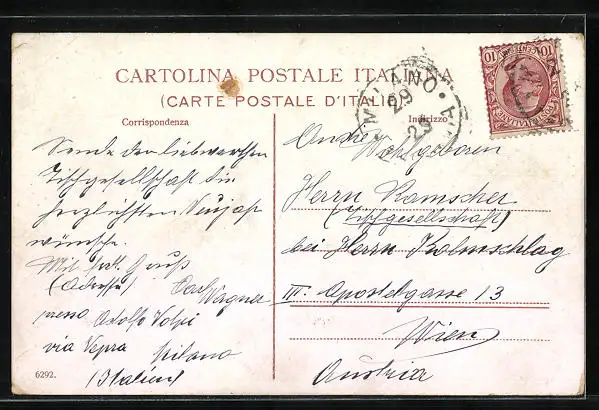 CARTOLINA POSTALE ITALIANA
(CARTE POSTALE D'ITALIE)
Corrispondenza
Indirizzo
Sende der liebwerthen
Tischgesellschaft die
herzlichsten Neujahrs
wünsche.
Mit Gruß
(Adresse) Carl Wagner
presso Adolfo Volpi
via Vepra Milano
(Italien)
6292.
MILANO
29
29
10 CENTESIMI 10
POSTE ITALIANE
Wohlgeboren
Herrn Ramscher
(Tischgesellschaft)
bei Herrn Kolmschlag
III. Apostelgasse 13
Wien
Austria